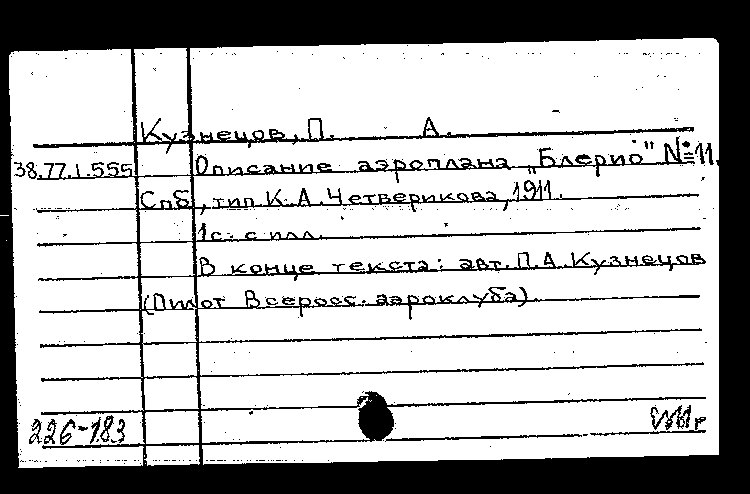 Кузнецов, П. А.
38.77.1.555 Описание аэроплана „Блерио" № 11.
Спб, тип. К.А. Четверикова, 1911.
1с. с илл.
В конце текста: авт. П.А. Кузнецов
(Пилот Всеросс. аэроклуба).
226-183